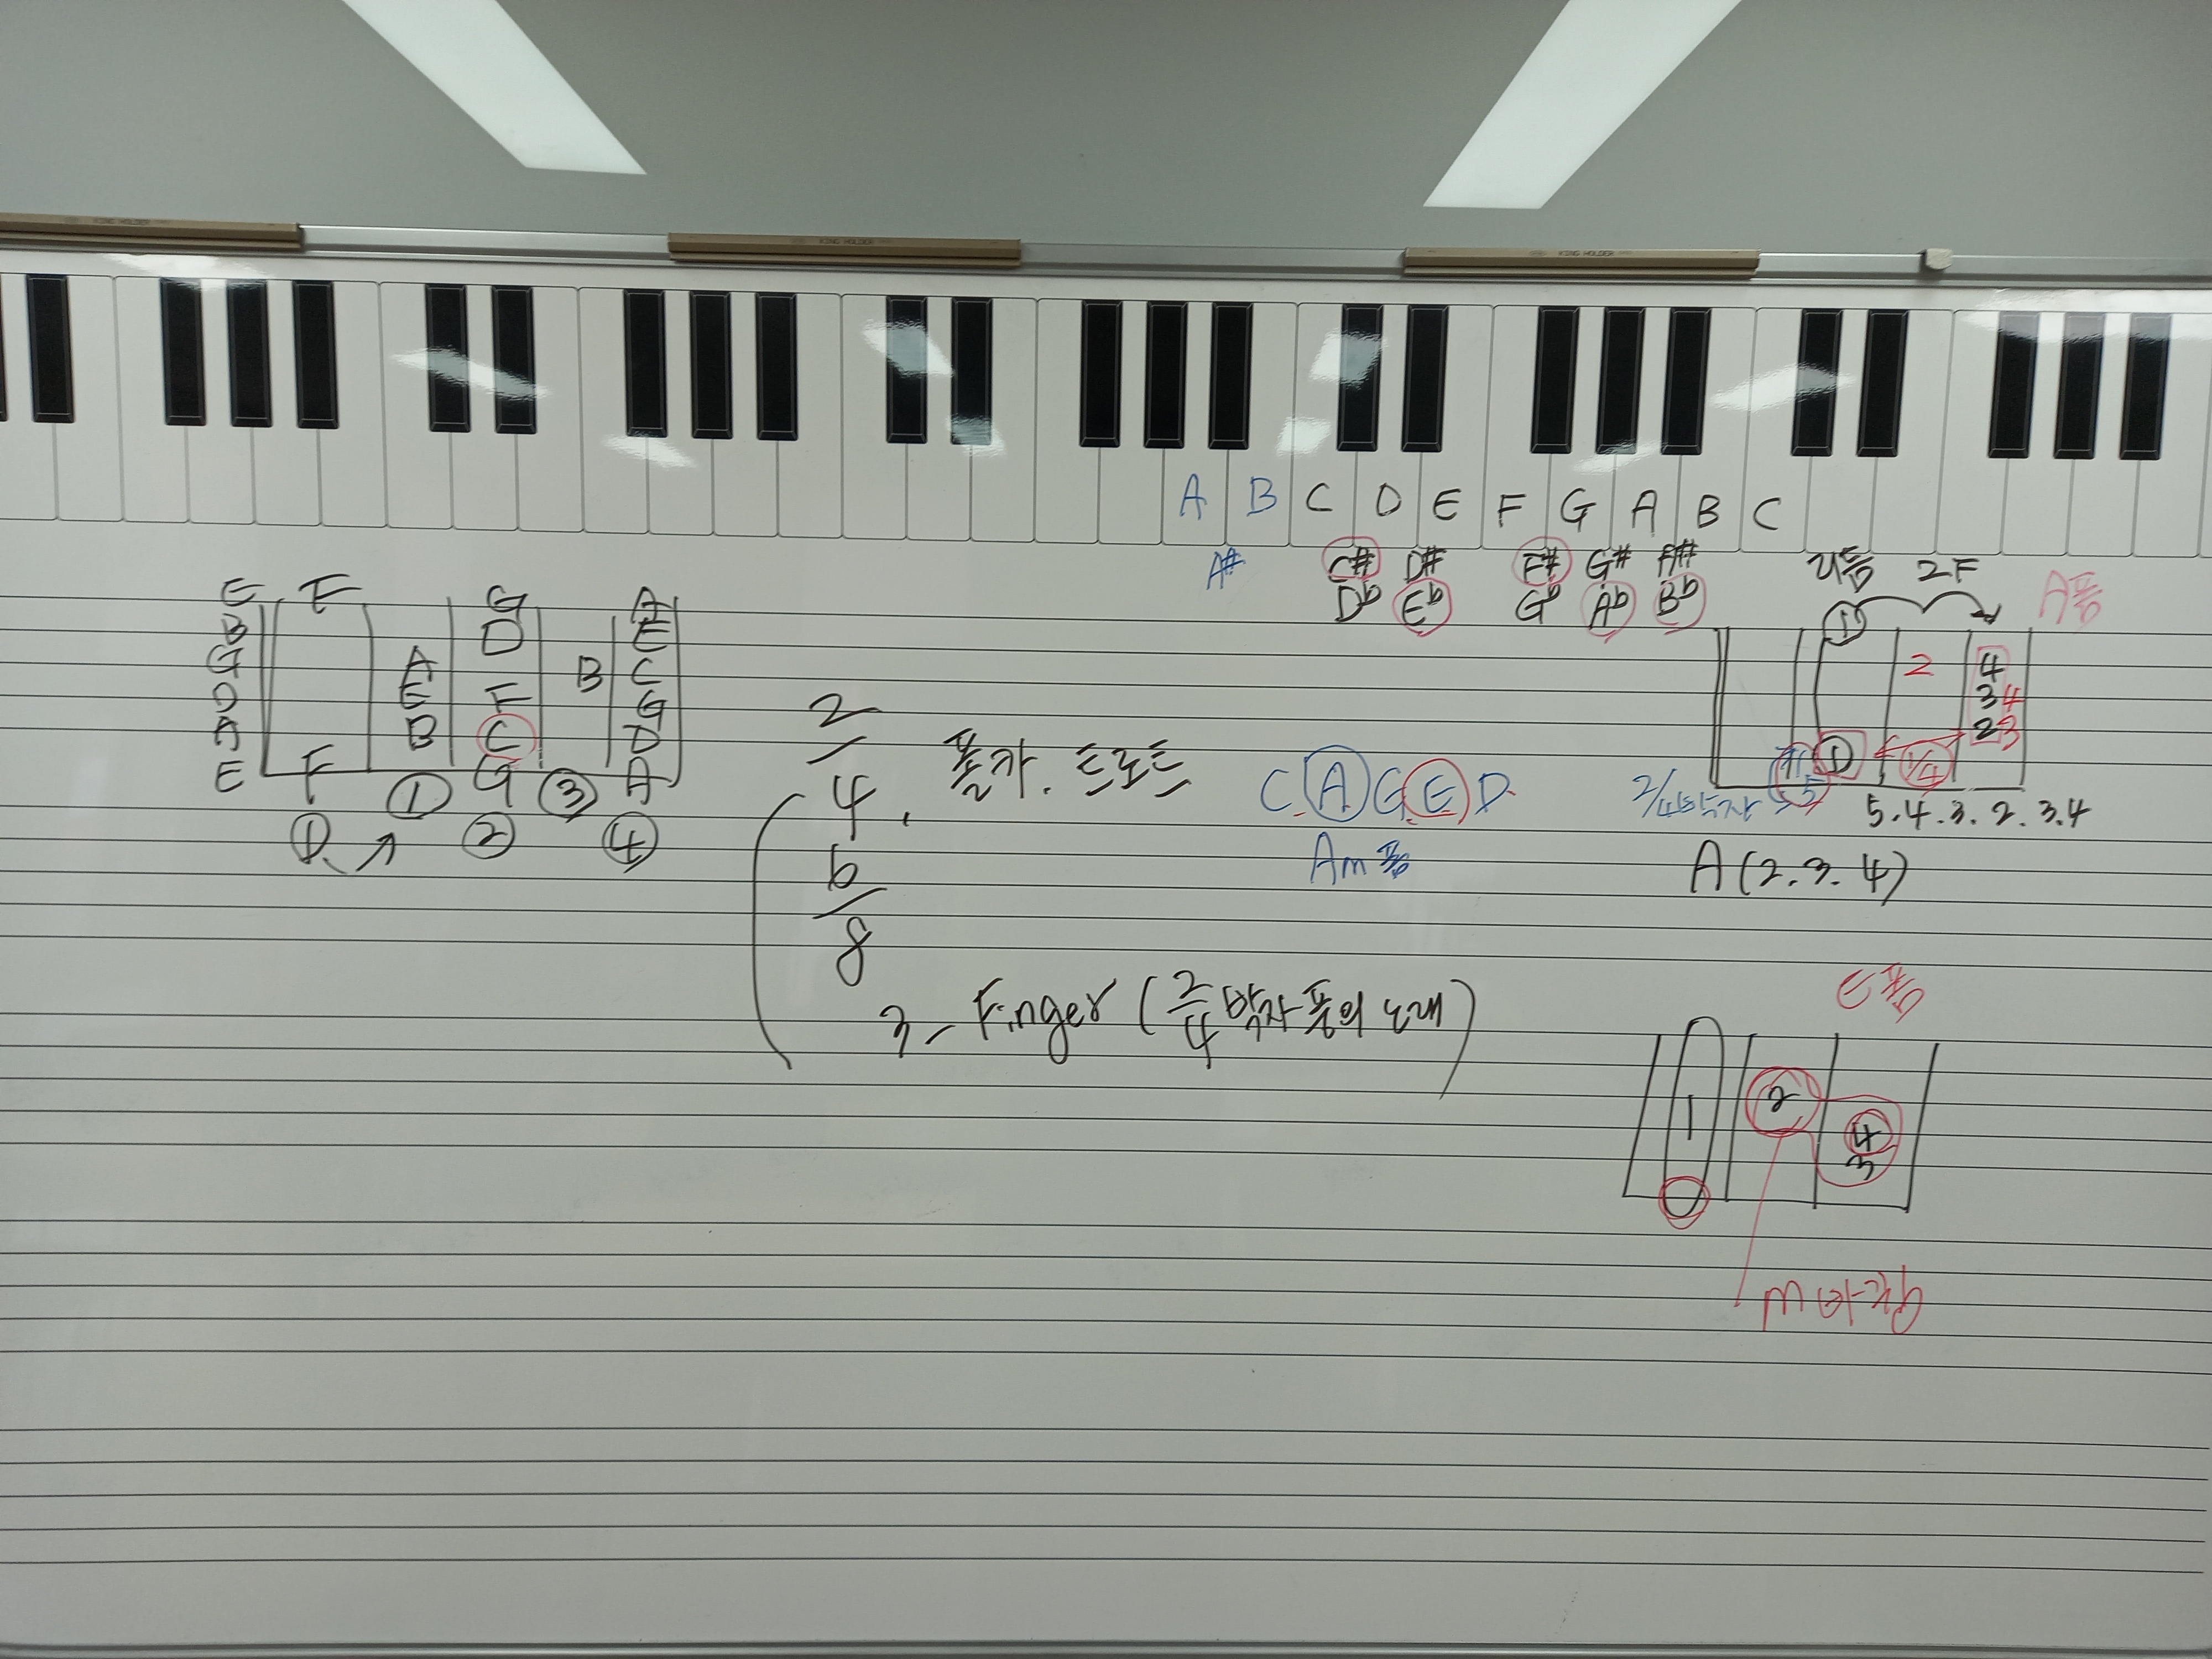 KING HOLDER
KING HOLDER
KING HOLDER
A B C D E F G A B C
A# C# D# F# G# A#
Db Eb Gb Ab Bb
E F G A
B D E
G A B C
D E F G
A B C D
E F G A
① ③
① ② ④
2
4. 폴카. 트로트
6
8
3_ Finger (2/4 박자 풍의 노래)
C A G E D
Am폼
2F
A폼
①
2 4
3 4
2 3
① 1/4
2/4박자
5
5.4.3.2.3.4
A (2.3.4)
E폼
1 2 4
3